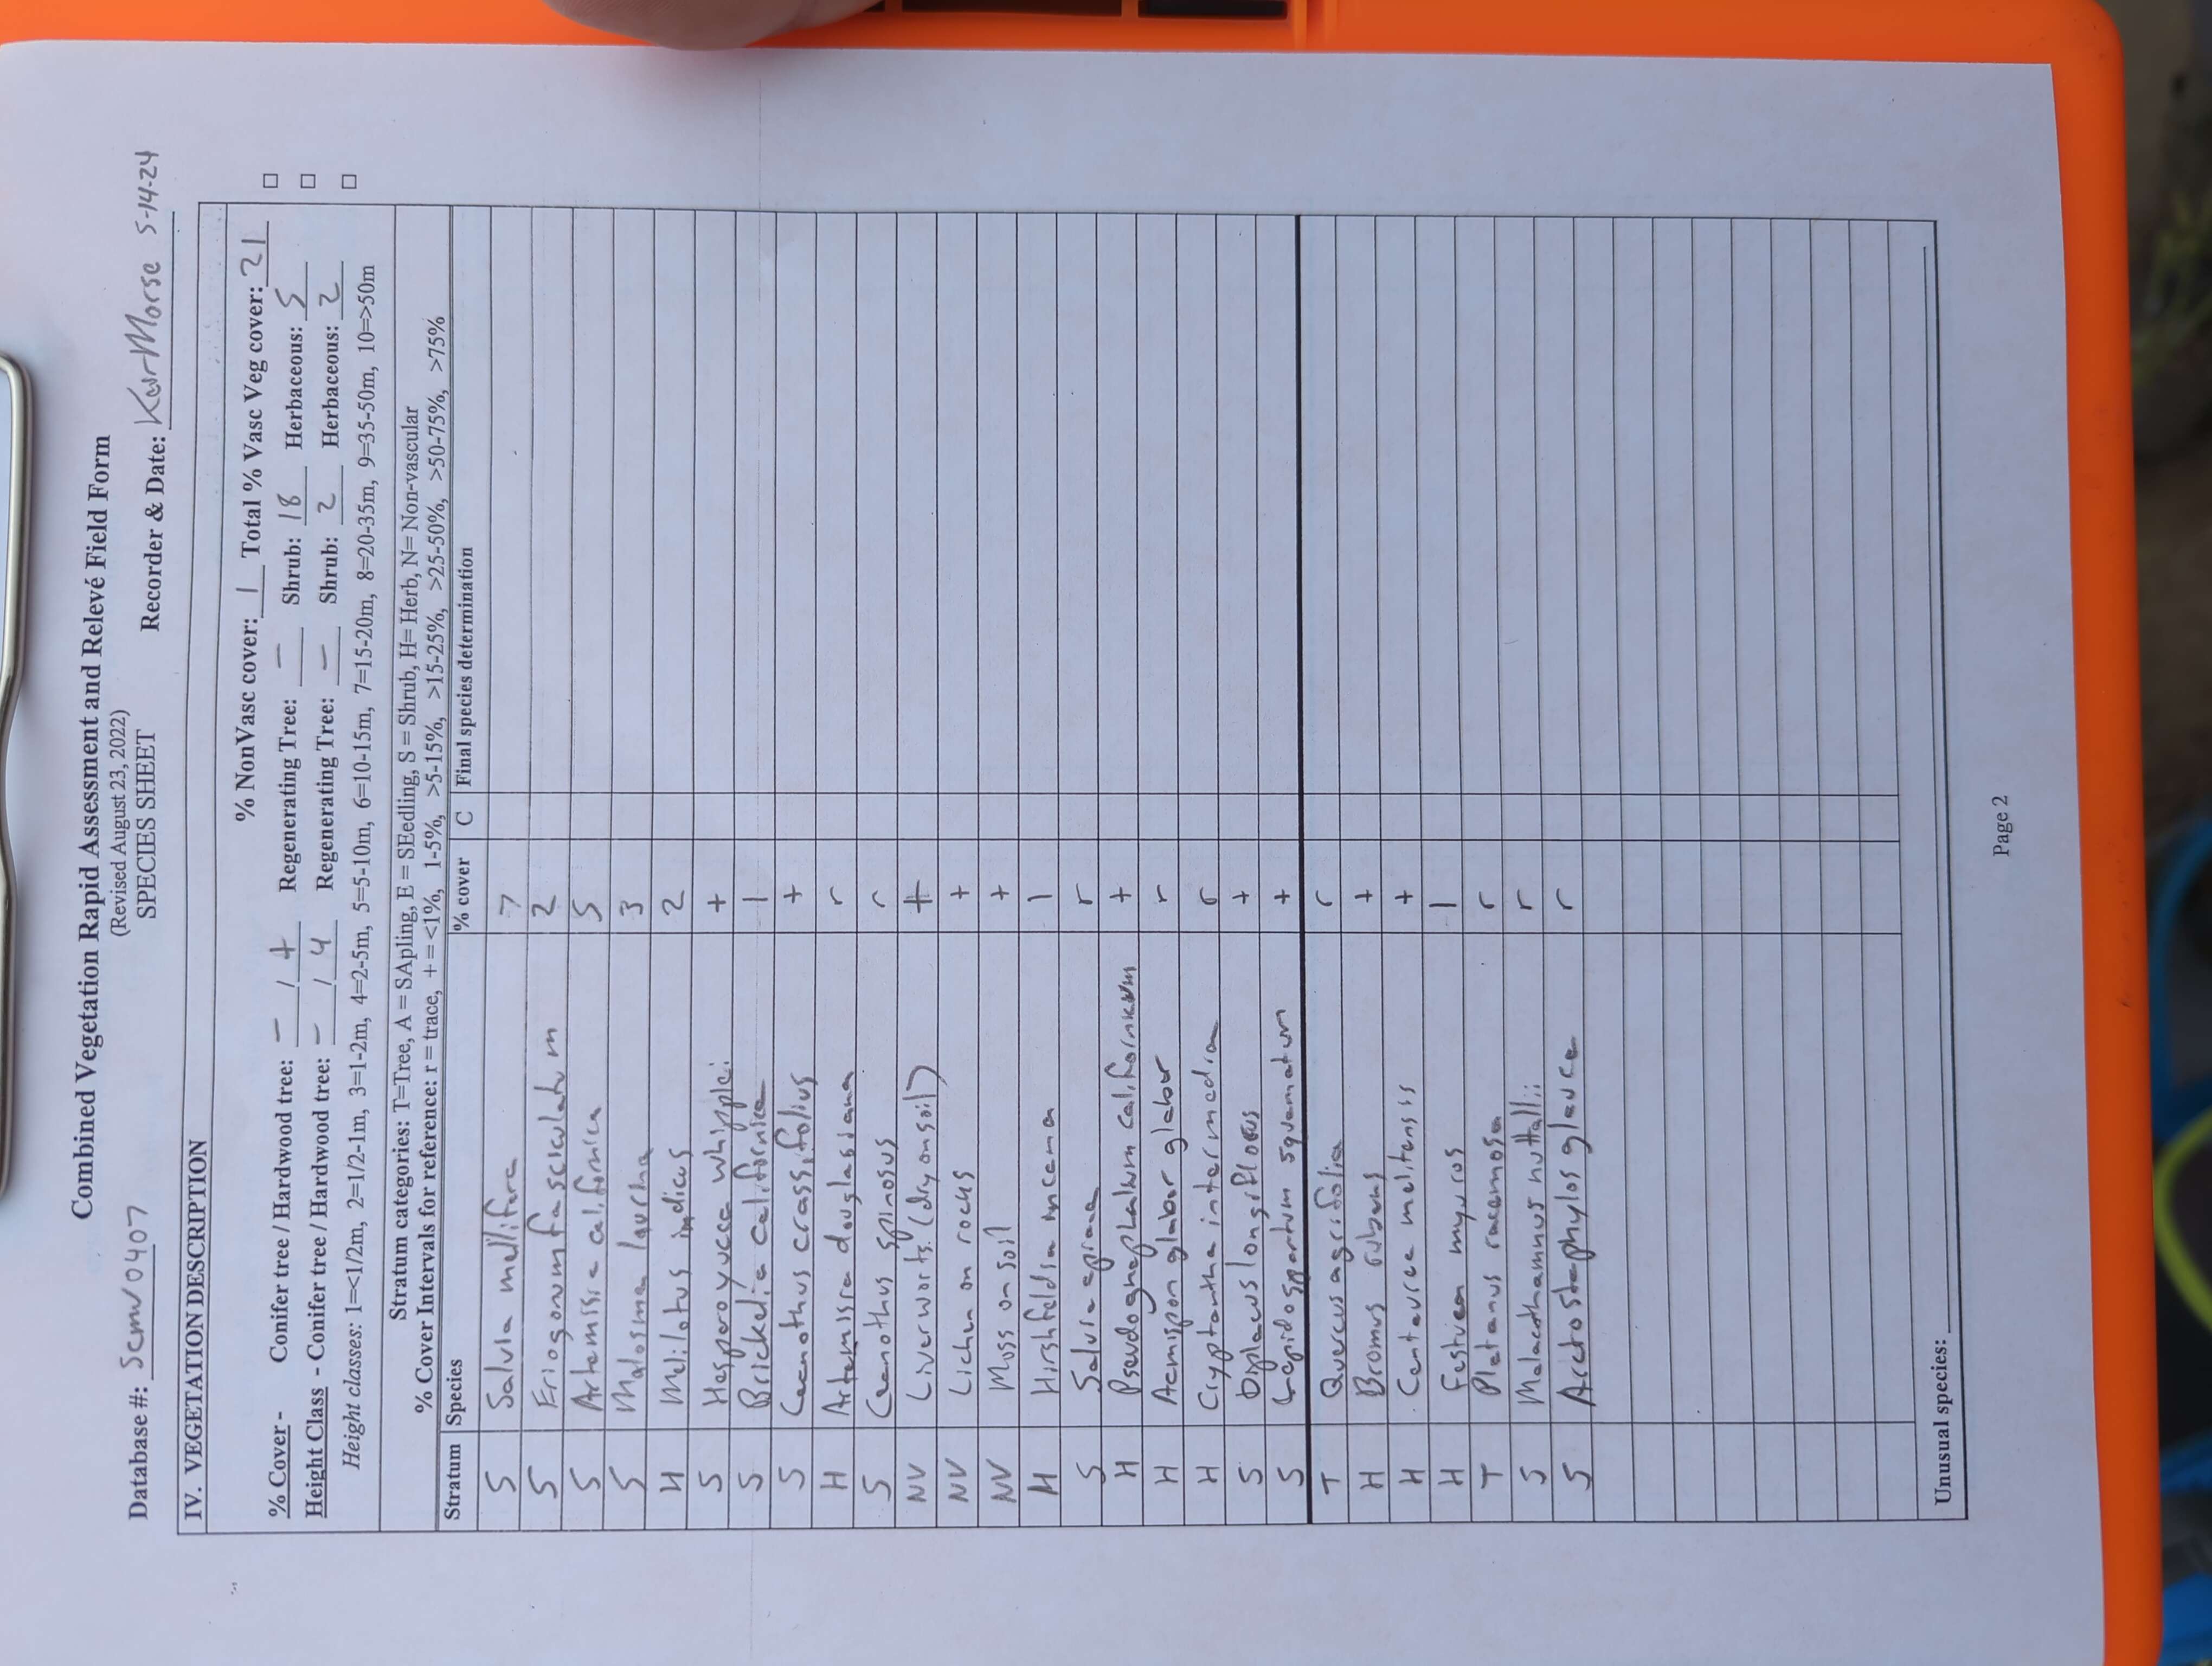 Combined Vegetation Rapid Assessment and Relevé Field Form
(Revised August 23, 2022)
SPECIES SHEET
Database #: Scmw0407 Recorder & Date: Morse 5-14-24
IV. VEGETATION DESCRIPTION
% NonVasc cover: 1 Total % Vasc Veg cover: 21
% Cover - Conifer tree / Hardwood tree: - / + Regenerating Tree: - Shrub: 18 Herbaceous: 5 □
Height Class - Conifer tree / Hardwood tree: - / 4 Regenerating Tree: - Shrub: 2 Herbaceous: 2 □
Height classes: 1=<1/2m, 2=1/2-1m, 3=1-2m, 4=2-5m, 5=5-10m, 6=10-15m, 7=15-20m, 8=20-35m, 9=35-50m, 10=>50m □
Stratum categories: T=Tree, A = SApling, E = SEedling, S = Shrub, H= Herb, N= Non-vascular
% Cover Intervals for reference: r = trace, + = <1%, 1-5%, >5-15%, >15-25%, >25-50%, >50-75%, >75%
Stratum Species % cover C Final species determination
S Salvia mellifera 7
S Eriogonum fasciculatum 2
S Artemisia californica 5
S Malosma laurina 3
H Melilotus indicus 2
S Hesperoyucca whipplei +
S Brickellia californica 1
S Ceanothus crassifolius +
H Artemisia douglasiana r
S Ceanothus spinosus r
NV Liverworts (dry on soil) +
NV Lichen on rocks +
NV Moss on soil +
H Hirshfeldia incana 1
S Salvia apiana r
H Pseudognaphalium californicum +
H Acmispon glabar glabar r
H Cryptantha intermedia r
S Diplacus longiflorus +
S Lepidospartum squamatum +
T Quercus agrifolia r
H Bromus rubens +
H Centaurea melitensis +
H Festuca myuros 1
T Platanus racemosa r
S Malacothamnus nuttallii r
S Arctostaphylos glauca r
Unusual species:
Page 2